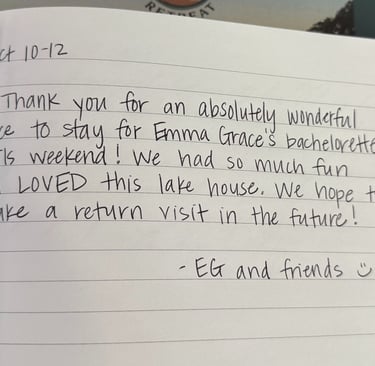 RETREAT
ct 10-12
Thank you for an absolutely wonderful
ce to stay for Emma Grace's bachelorette
ls weekend! We had so much fun
LOVED this lake house. We hope t
ake a return visit in the future!
- EG and friends